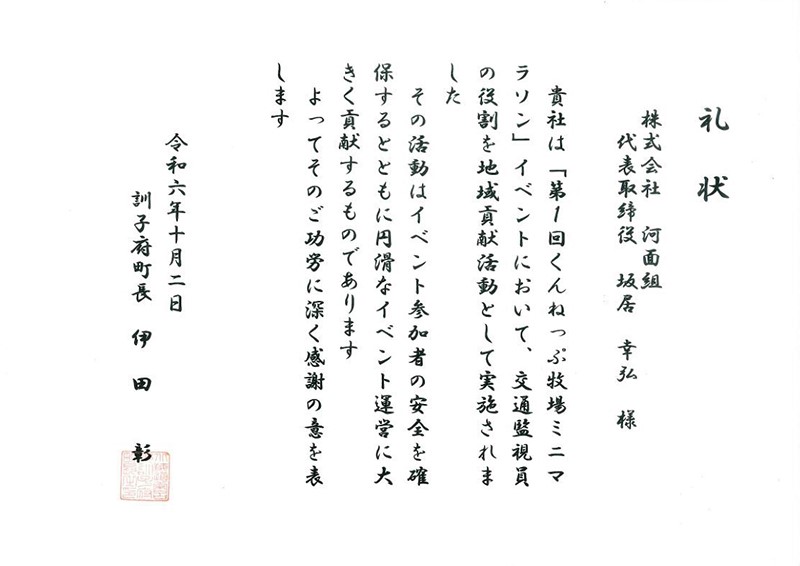 礼状
株式会社 河面組
代表取締役 坂居 幸弘 様
貴社は「第1回くんねっぷ牧場ミニマ
ラソン」イベントにおいて、交通監視員
の役割を地域貢献活動として実施されま
した
その活動はイベント参加者の安全を確
保するとともに円滑なイベント運営に大
きく貢献するものであります
よってそのご功労に深く感謝の意を表
します
令和六年十月二日
訓子府町長 伊田 彰